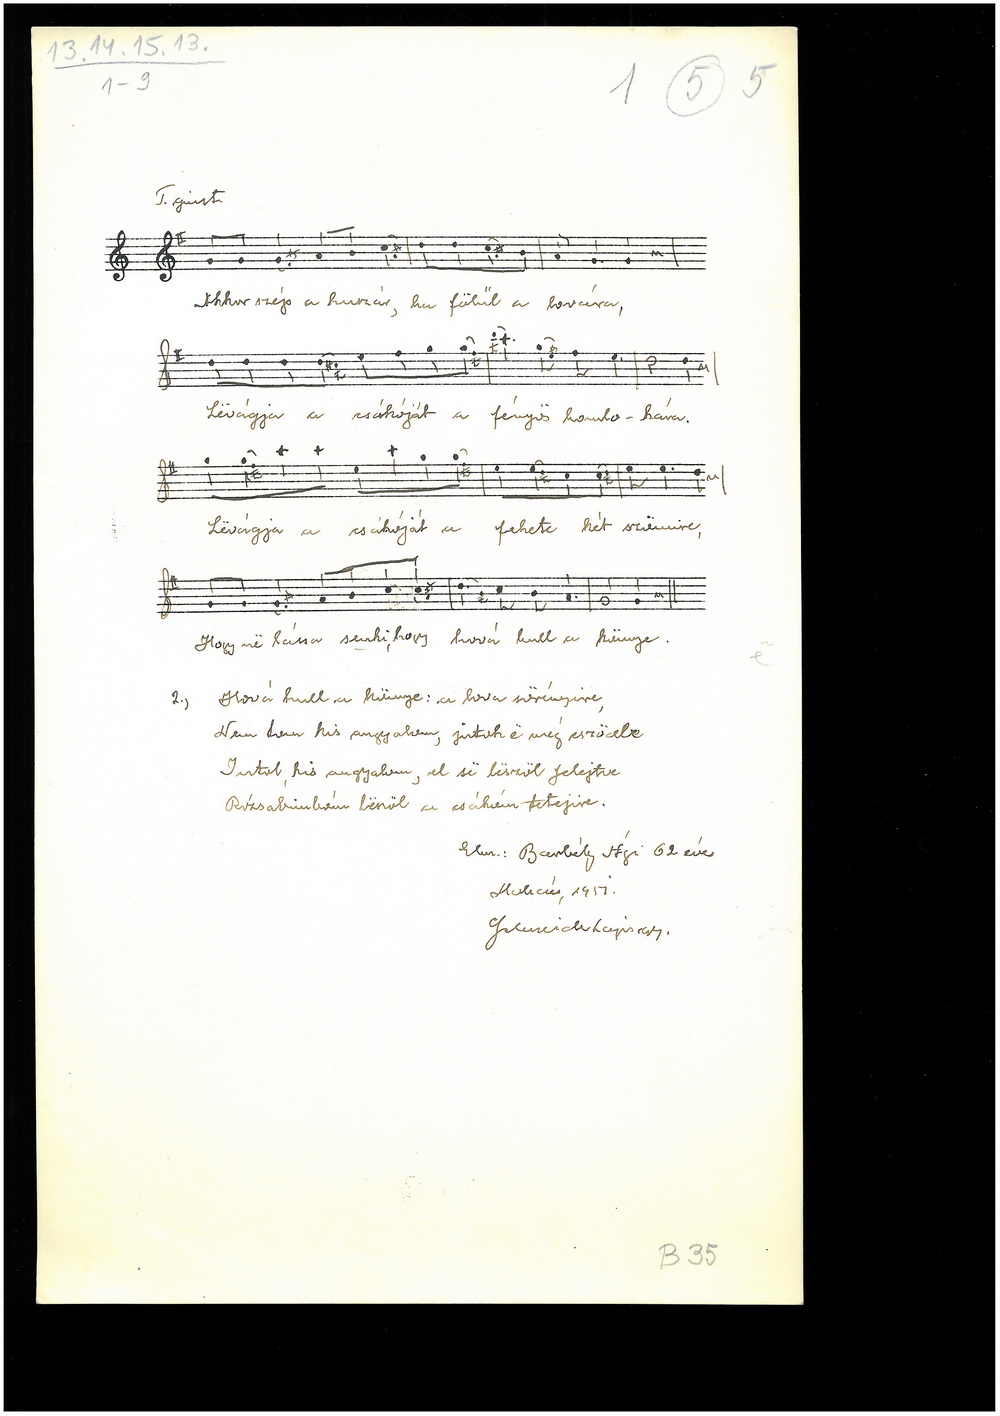 13.14.15.13.
1-9
1 5 5
T. giusto
Akkor szép a huszár, ha fölül a lovára,
Lëvágja a csákóját a fényös homlo-kára.
Lëvágja a csákóját a fekete két szëmire,
Hogy në lássa senki, hogy hová hull a könnye.
2., Hová hull a könnye: a lova sörényire,
Nem kis angyalom, jutok ë még eszödbe
Jutol, kis angyalom, el së lëszöl felejtve
Rózsabimbóm lëszöl a csákóm tetejire.
Elm.: Borbély Ági 62 éves
1951.
ë
B 35